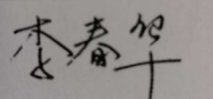 李春华